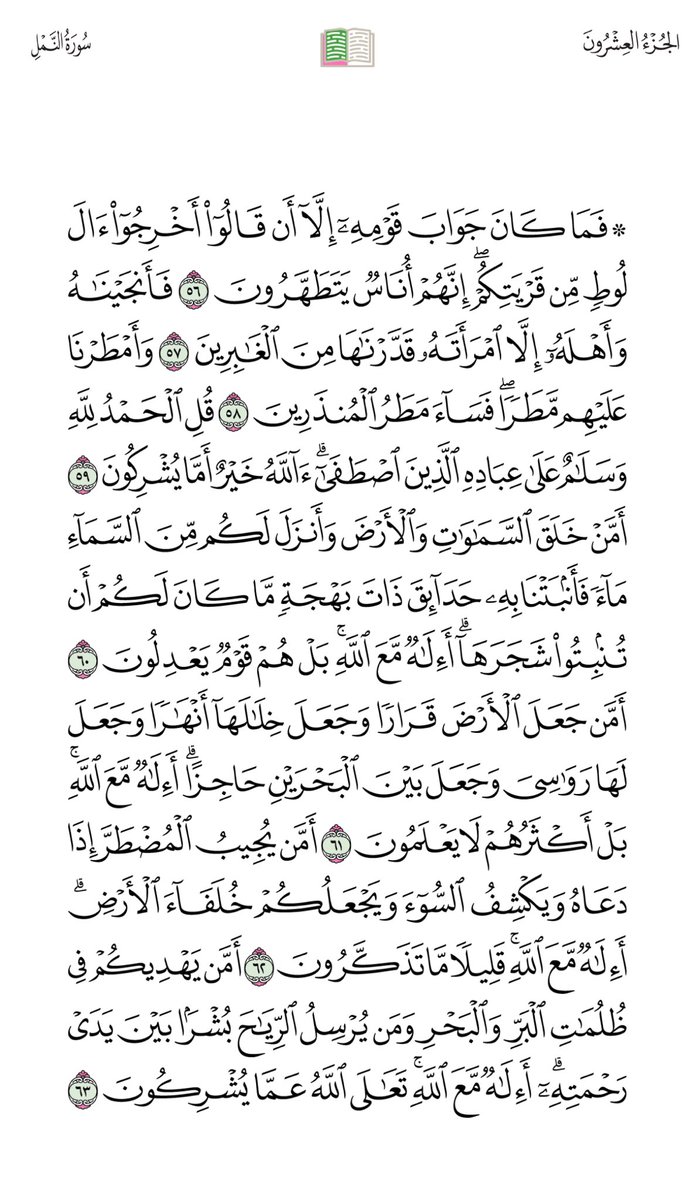 الجُزْءُ العِشْرُونَ
سُورَةُ النَّمْلِ
۞ فَمَا كَانَ جَوَابَ قَوْمِهِۦٓ إِلَّآ أَن قَالُوٓا۟ أَخْرِجُوٓا۟ ءَالَ
لُوطٍ مِّن قَرْيَتِكُمْ ۖ إِنَّهُمْ أُنَاسٌ يَتَطَهَّرُونَ ٥٦ فَأَنجَيْنَٰهُ
وَأَهْلَهُۥٓ إِلَّا ٱمْرَأَتَهُۥ قَدَّرْنَٰهَا مِنَ ٱلْغَٰبِرِينَ ٥٧ وَأَمْطَرْنَا
عَلَيْهِم مَّطَرًا ۖ فَسَآءَ مَطَرُ ٱلْمُنذَرِينَ ٥٨ قُلِ ٱلْحَمْدُ لِلَّهِ
وَسَلَٰمٌ عَلَىٰ عِبَادِهِ ٱلَّذِينَ ٱصْطَفَىٰٓ ۗ ءَآللَّهُ خَيْرٌ أَمَّا يُشْرِكُونَ ٥٩
أَمَّنْ خَلَقَ ٱلسَّمَٰوَٰتِ وَٱلْأَرْضَ وَأَنزَلَ لَكُم مِّنَ ٱلسَّمَآءِ
مَآءً فَأَنۢبَتْنَا بِهِۦ حَدَآئِقَ ذَاتَ بَهْجَةٍ مَّا كَانَ لَكُمْ أَن
تُنۢبِتُوا۟ شَجَرَهَآ ۗ أَءِلَٰهٌ مَّعَ ٱللَّهِ ۚ بَلْ هُمْ قَوْمٌ يَعْدِلُونَ ٦٠
أَمَّن جَعَلَ ٱلْأَرْضَ قَرَارًا وَجَعَلَ خِلَٰلَهَآ أَنْهَٰرًا وَجَعَلَ
لَهَا رَوَٰسِىَ وَجَعَلَ بَيْنَ ٱلْبَحْرَيْنِ حَاجِزًا ۗ أَءِلَٰهٌ مَّعَ ٱللَّهِ ۚ
بَلْ أَكْثَرُهُمْ لَا يَعْلَمُونَ ٦١ أَمَّن يُجِيبُ ٱلْمُضْطَرَّ إِذَا
دَعَاهُ وَيَكْشِفُ ٱلسُّوٓءَ وَيَجْعَلُكُمْ خُلَفَآءَ ٱلْأَرْضِ ۗ
أَءِلَٰهٌ مَّعَ ٱللَّهِ ۚ قَلِيلًا مَّا تَذَكَّرُونَ ٦٢ أَمَّن يَهْدِيكُمْ فِى
ظُلُمَٰتِ ٱلْبَرِّ وَٱلْبَحْرِ وَمَن يُرْسِلُ ٱلرِّيَٰحَ بُشْرًۢا بَيْنَ يَدَىْ
رَحْمَتِهِۦٓ ۗ أَءِلَٰهٌ مَّعَ ٱللَّهِ ۚ تَعَٰلَى ٱللَّهُ عَمَّا يُشْرِكُونَ ٦٣